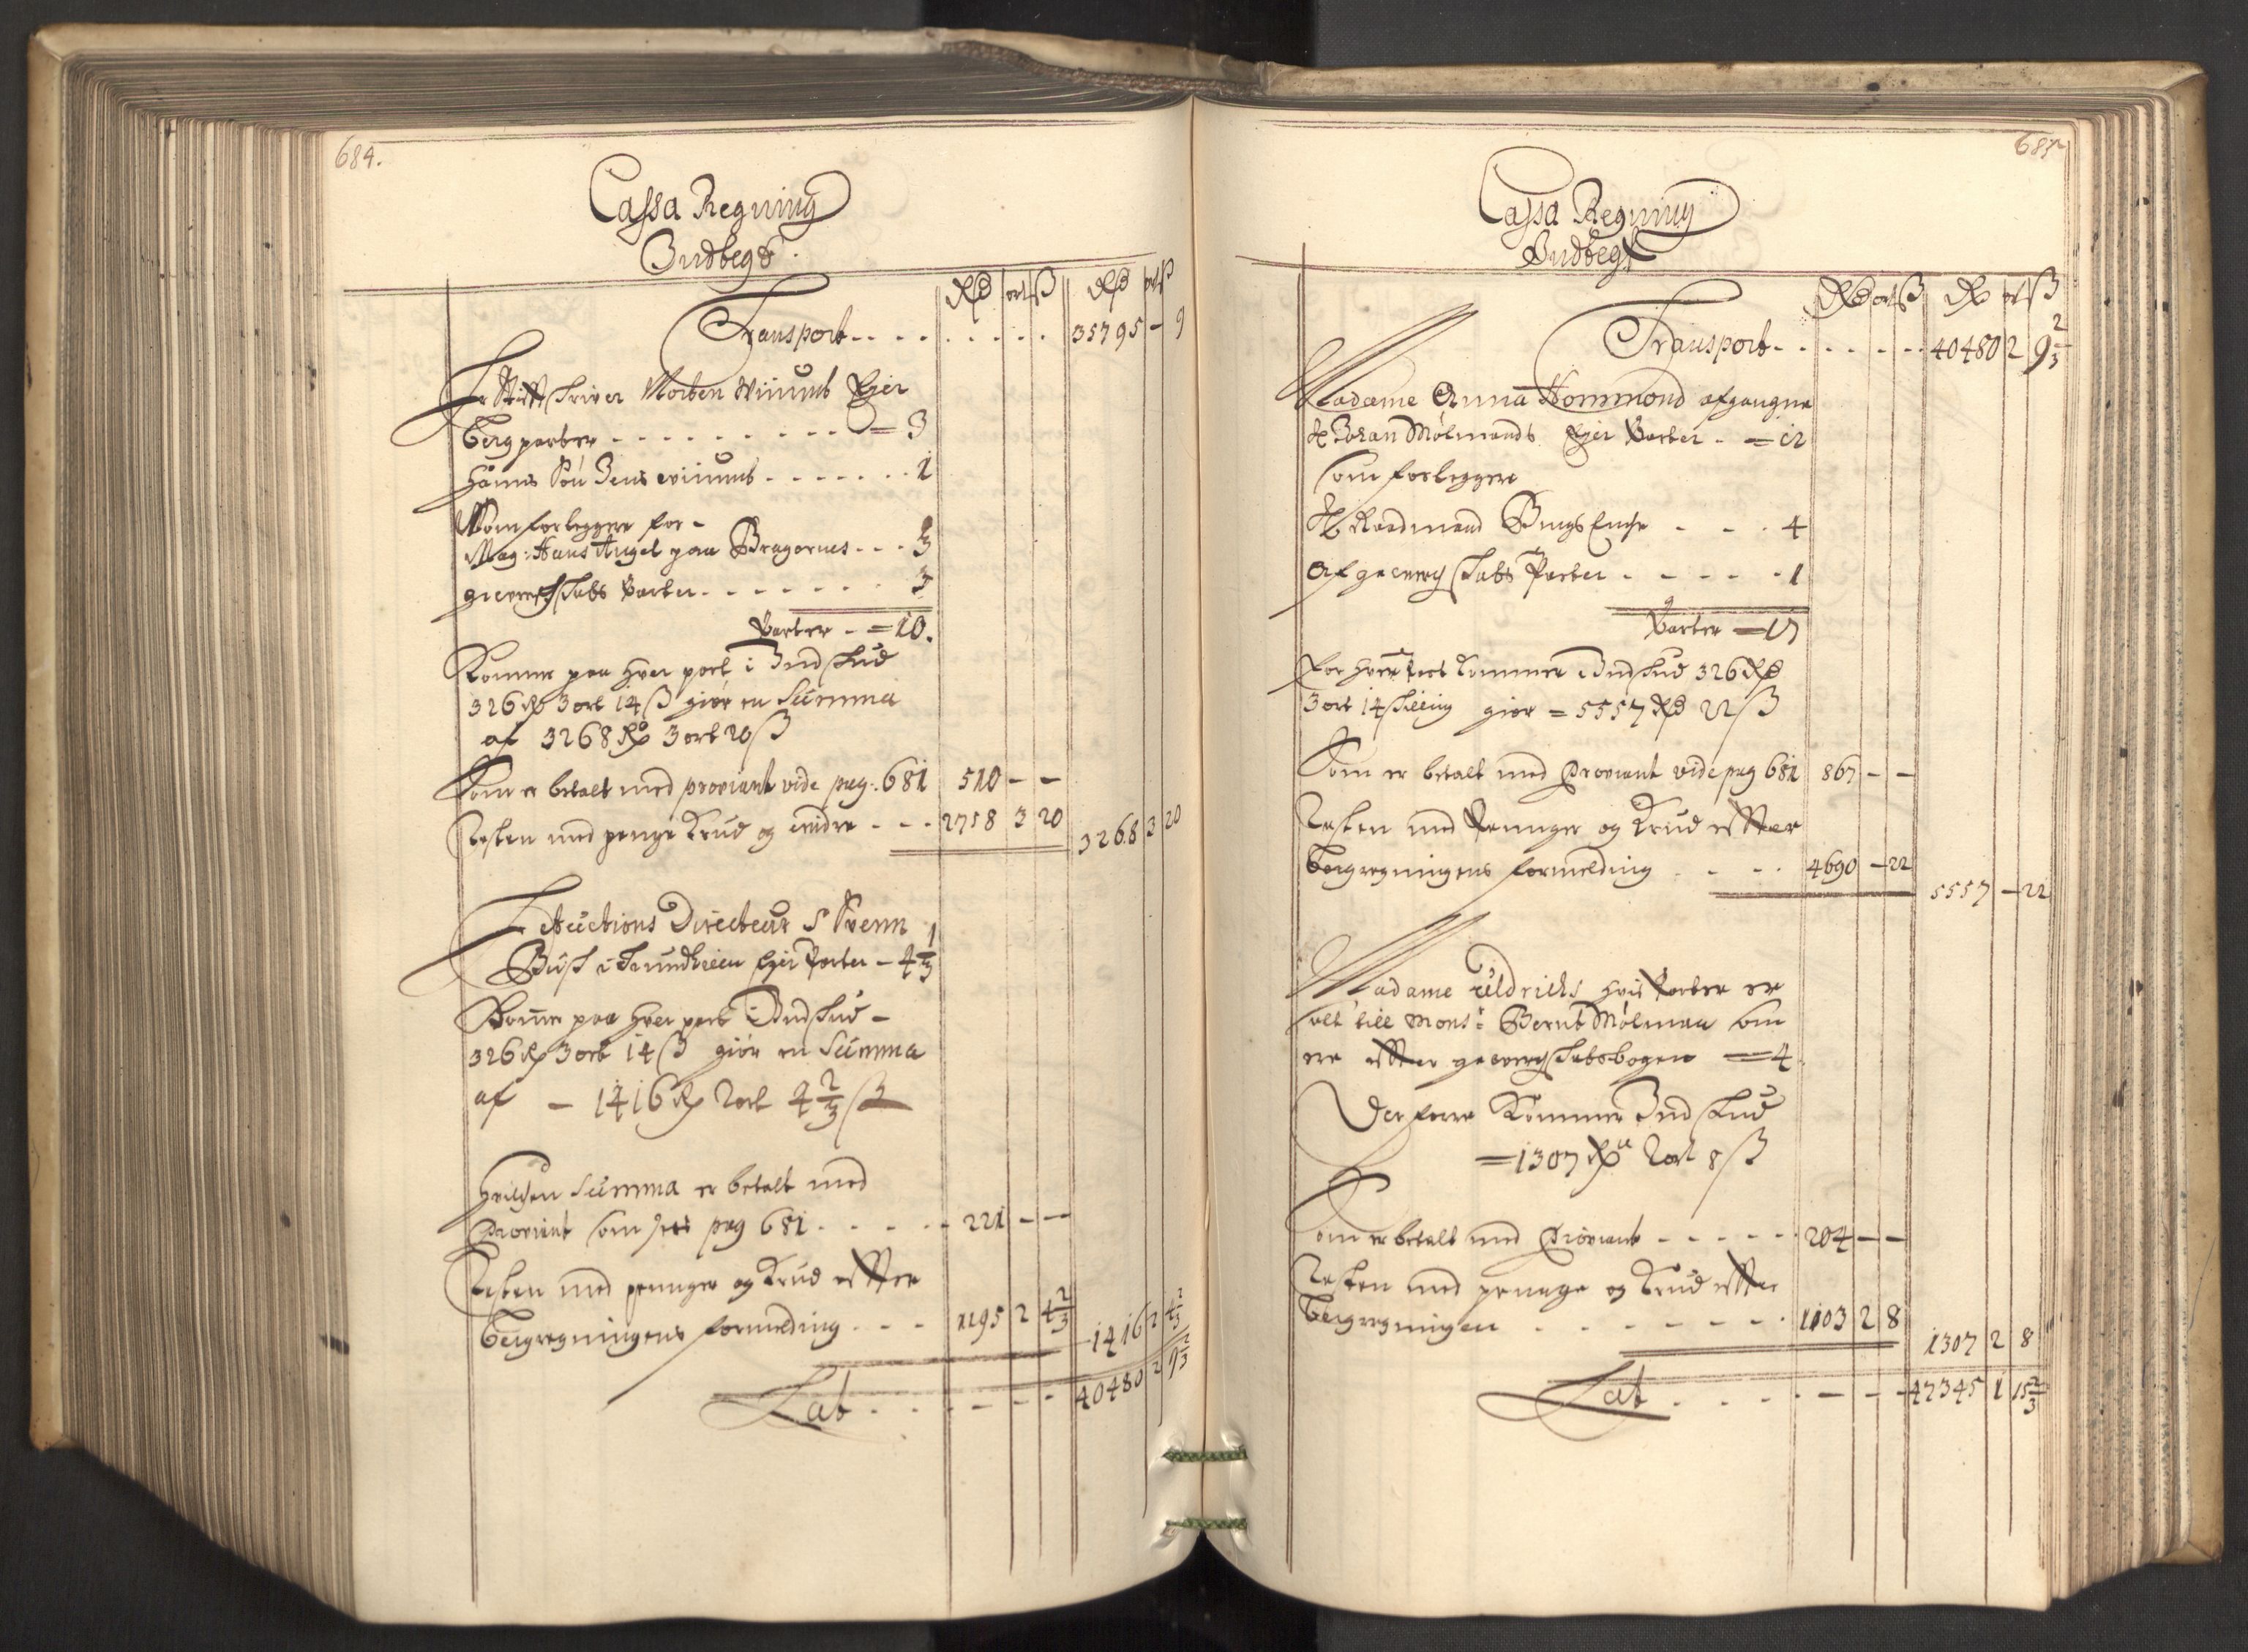 684.
Cassa Regning
Indtegt.
Rd ort ß Rd ort ß
Transport - - - - 35795 - 9
Hr Stifftskriver Morten Wiinums Ejer
bergparter - - - - = 3
hanns Søn Jens Wiinums - - - - 1
Som forleggere for -
Mag: Hans Angel paa Bragernes - - - 3
gewerckskabs Parter - - - - 3
Parter - = 10.
Kommer paa hver part i Indskud
326 Rd 3 ort 14 ß giør en Summa
af 3268 Rd 3 ort 20 ß
Som er betalt med proviant vide pag: 681 510 - -
Resten med penge Krud og andre - - - 2758 3 20 3268 3 20
Hr Auctions Directeur S Svenn
Busk i Trundhiem Ejer Parter - 4 1/3
Kommer paa hver part i Indskud -
326 Rd 3 ort 14 ß giør en Summa
af - 1416 Rd 2 ort 4 2/3 ß
hvilchen Summa er betalt med
Proviant som sees pag 681 - - - - 221 - -
Resten med penger og Krud effter
bergregningens formelding - - - 1195 2 4 2/3 1416 2 4 2/3
Lat - - - - 40480 2 9 2/3
685
Cassa Regning
Indtegt
Rd ort ß Rd ort ß
Transport - - - - 40480 2 9 2/3
Madame Anna Hommond afgangne
H Johan Mølmands Ejer Parter - = 12
som forleggere
H. Raadmand Bings Enche - - - 4
Af gewerckskabs Parter - - - - 1
Parter = 17
for hver part kommer Indskud 326 Rd
3 ort 14 skilling giør = 5557 Rd 22 ß
Som er betalt med Proviant vide pag 681 867 - -
Resten med Penger og Krud effter
bergregningens formelding - - - 4690 - 22 5557 - 22
Madame Uldrichs hvis Parter er
solt till Monsr Bernt Mølman som
ere effter gewerckskabsbogen = 4
Derforre Kommer Indskud
= 1307 Rd 2 ort 8 ß
Som er betalt med Proviant - - - - 204 - -
Resten med penge og Krud effter
bergregningen - - - - 1103 2 8 1307 2 8
Lat - - - - 47345 1 15 2/3